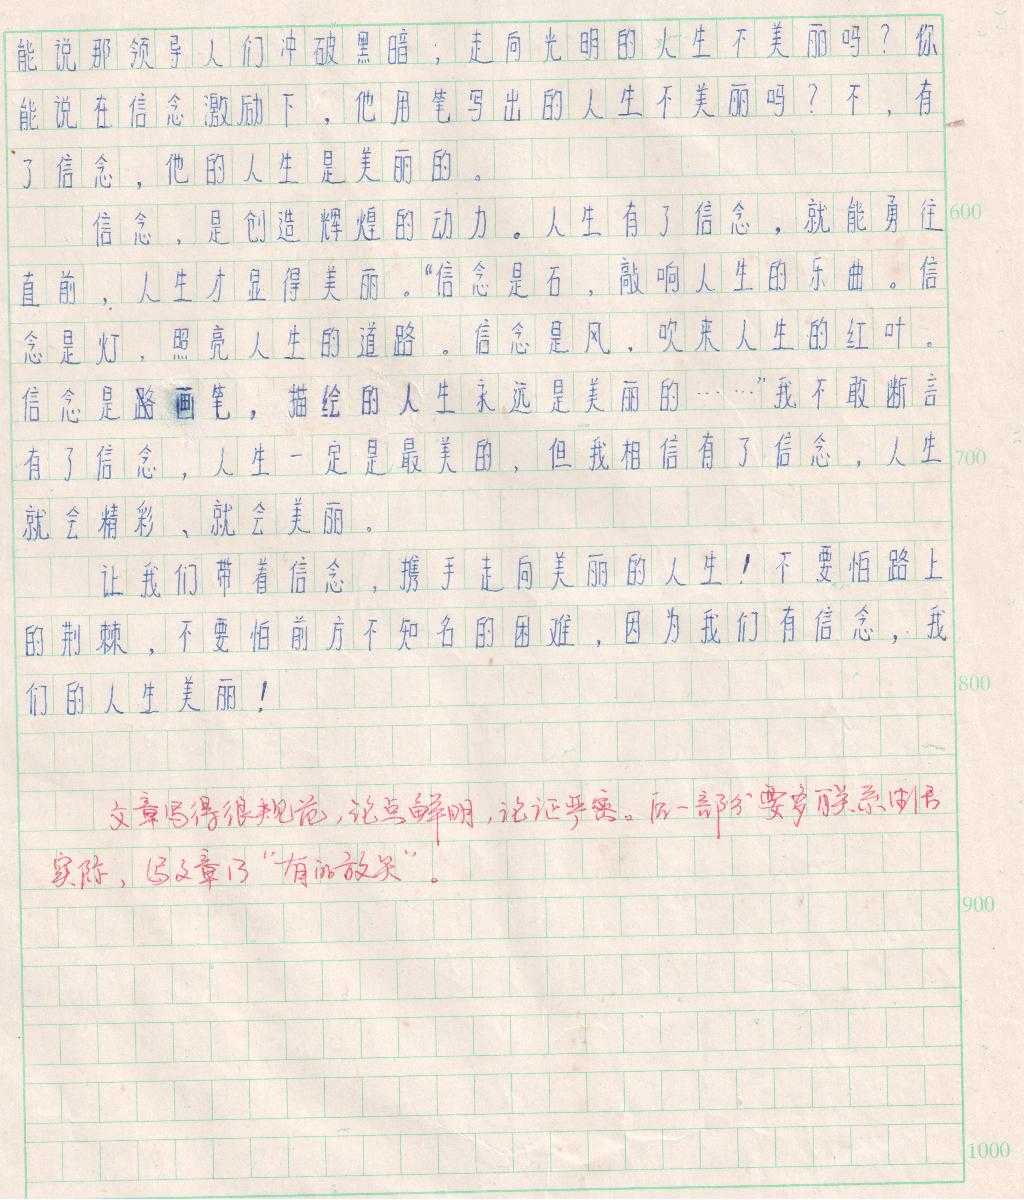 能说那领导人们冲破黑暗；走向光明的人生不美丽吗？你
能说在信念激励下，他用笔写出的人生不美丽吗？不，有
了信念，他的人生是美丽的。
信念，是创造辉煌的动力。人生有了信念，就能勇往
600
直前，人生才显得美丽。“信念是石，敲响人生的乐曲。信
念是灯，照亮人生的道路。信念是风，吹来人生的红叶。
信念是路画笔，描绘的人生永远是美丽的……”我不敢断言
有了信念，人生一定是最美的，但我相信有了信念，人生
700
就会精彩、就会美丽。
让我们带着信念，携手走向美丽的人生！不要怕路上
的荆棘，不要怕前方不知名的困难，因为我们有信念，我
们的人生美丽！
800
文章写得很规范，论点鲜明，论证严密。后一部分要多联系
实际，写文章乃“有的放矢”。
900
1000